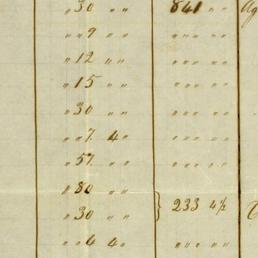 " 30 " " 841 " Ag
" 9 " " " " " "
" 12 " " " " " "
" 15 " " " " " "
" 30 " " " " " "
" 7. 4 " " " " "
" 57. " " " " " "
" 80 " "
" 30 " " } 233 4½
" 4 4 " " " " "